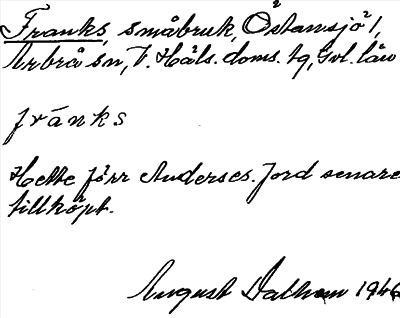 Franks, småbruk, Östansjö 1,
Arbrå sn, V. Häls. doms. tg, Gvl. län
fránks
Hette förr Anderses. Jord senare
tillköpt.
August Dalhem 1946